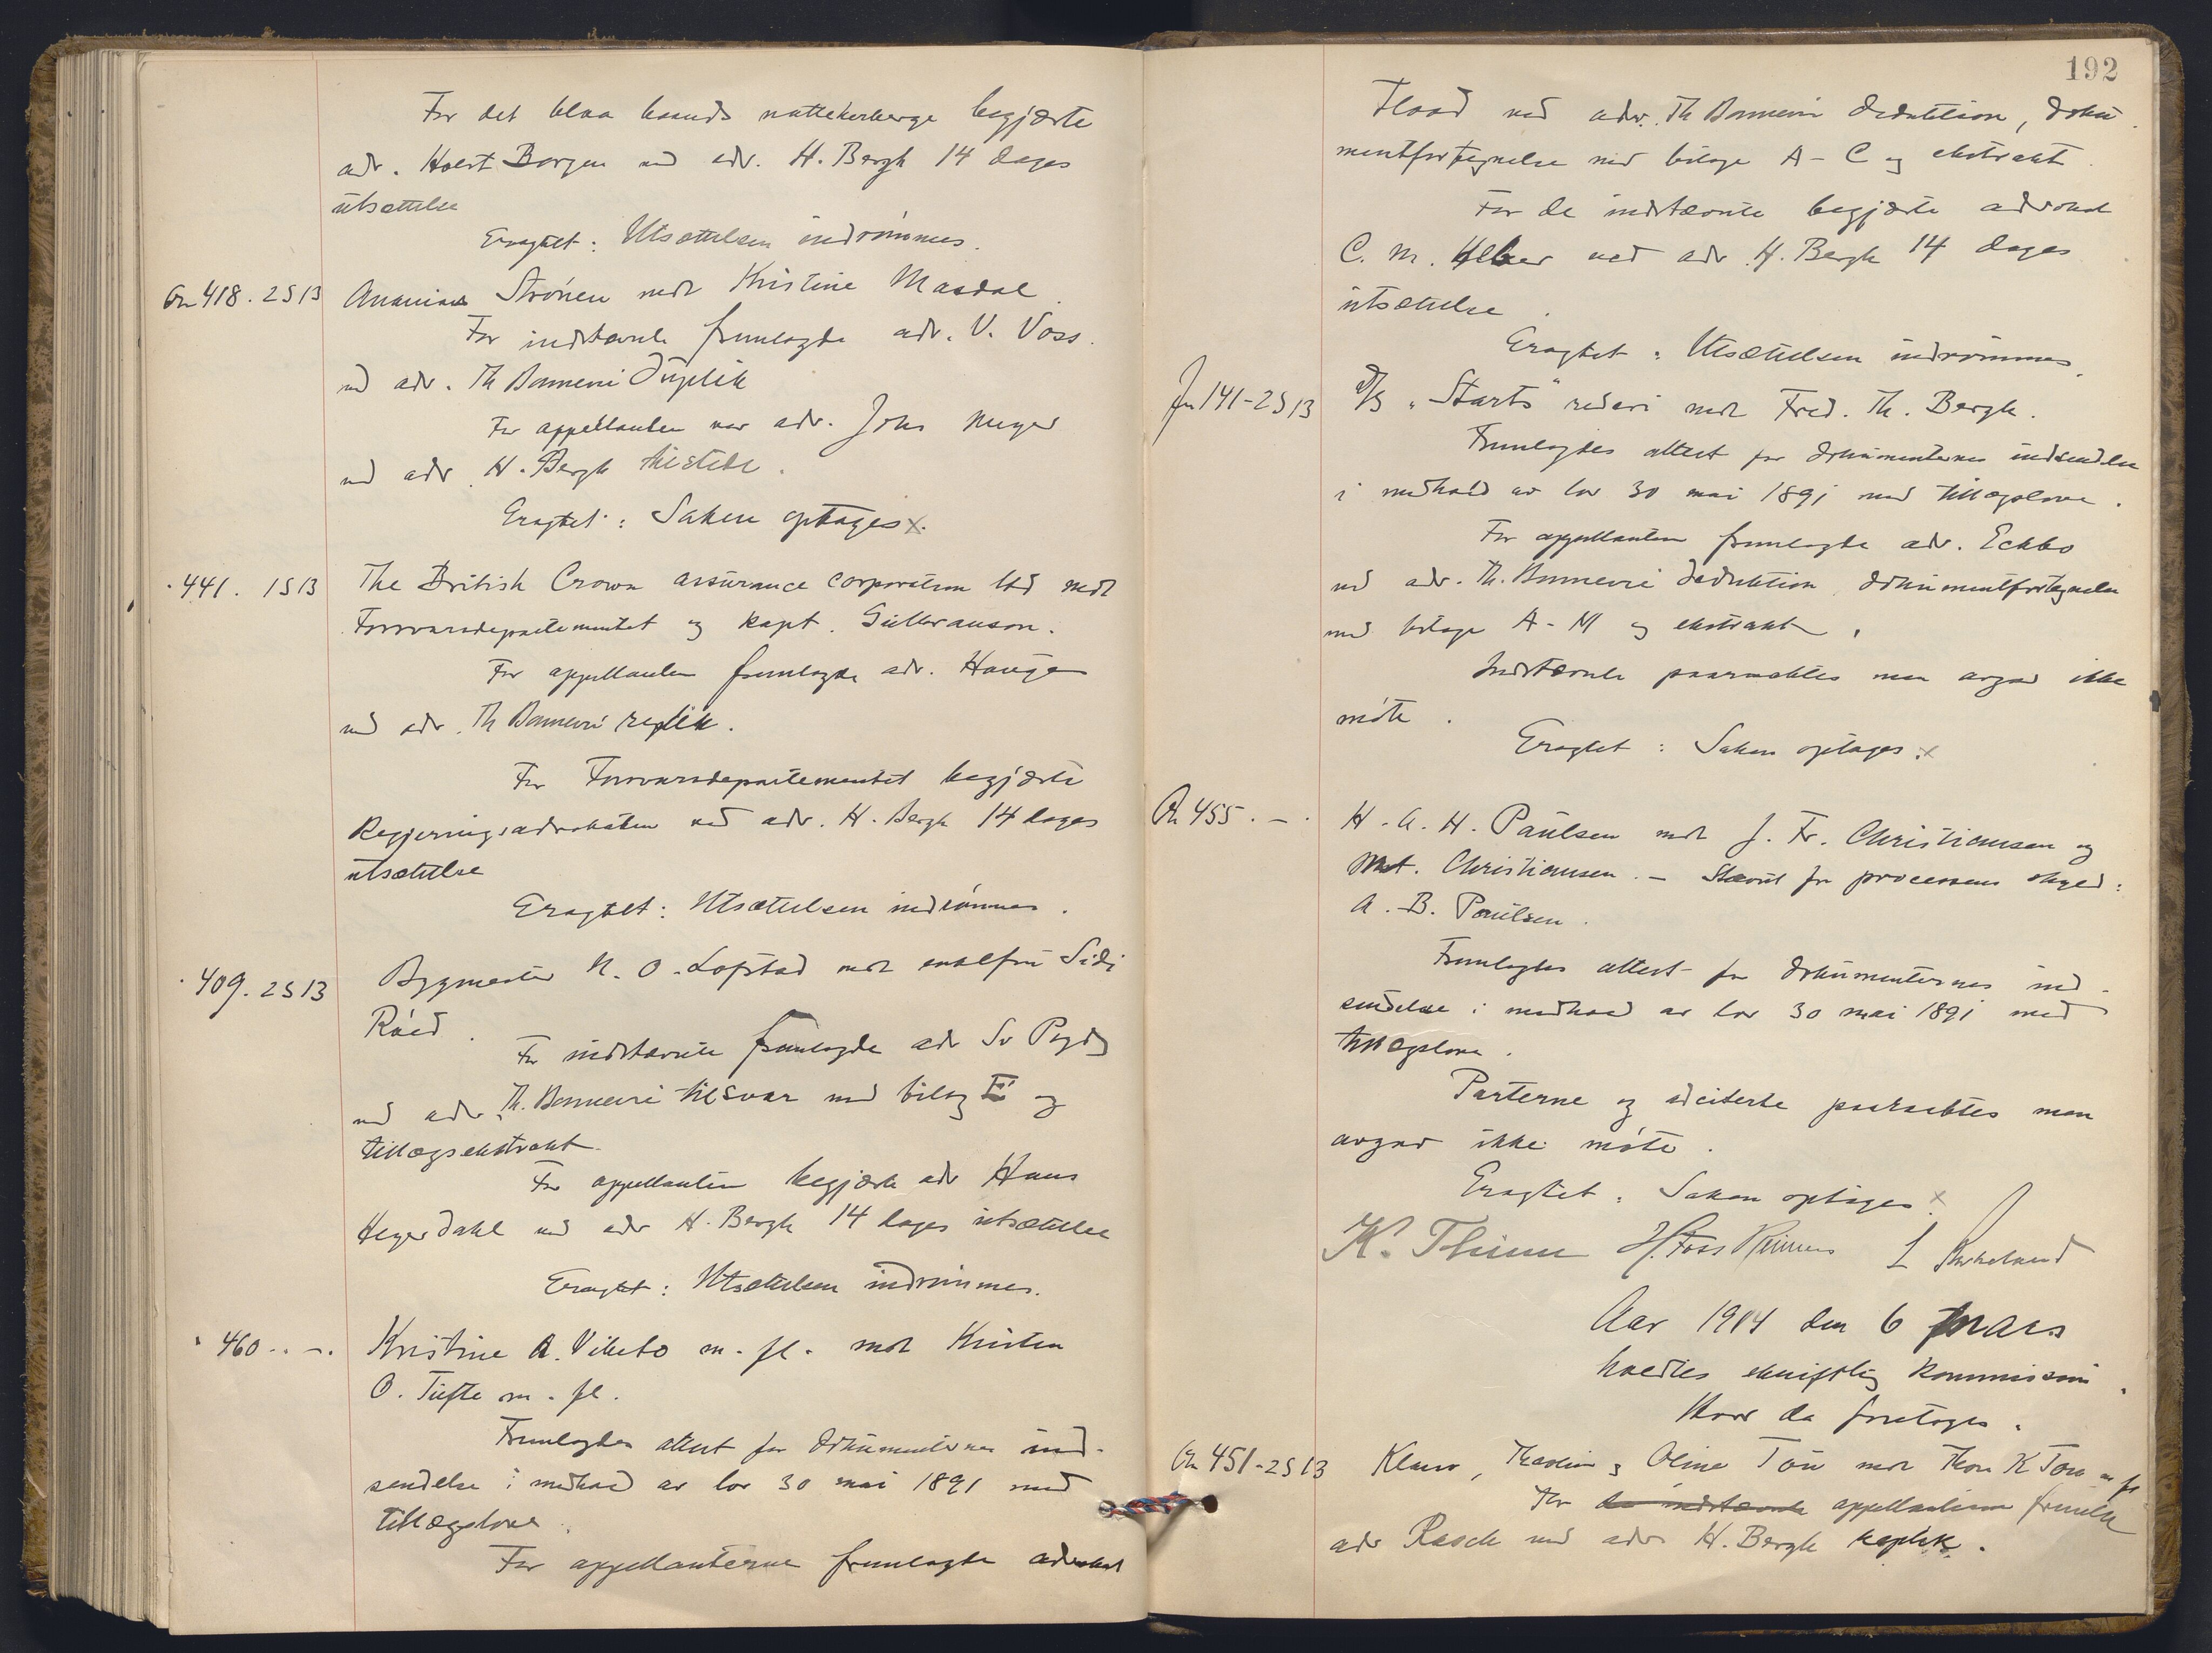 For det blaa baands natteherberge begjærte
adv. Holst Borgen ved adv. H. Bergh 14 dages
utsættelse
Eragtet: Utsættelsen indrømmes.
An 418. 2S13 Ananias Strönen mot Kristine Maadal
For indstævnte fremlagde adv. V. Voss
ved adv. Th Bonnevi Duplik
For appellanten var adv. Johs Meyer
ved adv H. Bergh tilstede.
Eragtet: Saken optages x.
" 441. 1S13 The British Crown assurance corporation ltd mot
Forsvarsdepartementet og kapt. Gulbranson.
For appellanten fremlagde adv. Hauge
ved adv. Th Bonnevi replik.
For Forsvarsdepartementet begjærte
Regjeringsadvokaten ved adv. H. Bergh 14 dages
utsættelse
Eragtet: Utsættelsen indrømmes.
" 409. 2S13 Bygmester N. O. Lopstad mot enkefru Sidi
Röed.
For indstævnte fremlagde adv
ved adv. Th. Bonnevi tilsvar med bilag E og
tillægsekstrakt
For appellanten begjærte adv Hans
Heyerdahl ved adv H. Bergh 14 dages utsættelse
Eragtet: Utsættelsen indrömmes.
" 460. . - . Kristine A. Vibeto m. fl. mot Kristen
O. Tufte m. fl.
Fremlagdes attest for dokumenternes ind-
sendelse i medhold av lov 30 mai 1891 med
tillægslove.
For appellanterne fremlagde advokat
192
Flood ved adv. Th Bonnevi deduktion, doku
mentfortegnelse med bilage A - C og ekstrakt
For de indstævnte begjærte advokat
C. M. ved adv. H. Bergh 14 dages
utsættelse.
Eragtet: Utsættelsen indrömmes.
Jn 141-2S13 D/S "Starts" rederi mot Fred. Th. Bergh.
Fremlagdes attest for dokumenternes indsendelse
i medhold av lov 30 mai 1891 med tillægslove.
For appellanten fremlagde adv. Eckbo
ved adv. Th. Bonnevi deduktion, dokumentfortegnelse
med bilage A - M og ekstrakt.
Indstævnte paaraabtes men avgav ikke
möte.
Eragtet: Saken optages. x
An 455. - . H. A. H. Paulsen mot J. Fr. Christiansen og
Mat. Christiansen. - Stævnt for processens skyld:
A. B. Paulsen.
Fremlagdes attest for dokumenternes ind-
sendelse i medhold av lov 30 mai 1891 med
tillægslove.
Parterne og adciterte paaraabtes men
avgav ikke möte.
Eragtet: Saken optages. x
K. Thinn H. Foss Reimers L
Aar 1914 den 6 mars
holdtes skriftlig kommission
Hvor da foretoges.
An 451-2S13 og Oline Tou mot Thore K Tou m fl
For de indstævnte appellanterne
adv Rasch ved adv H. Bergh replik.